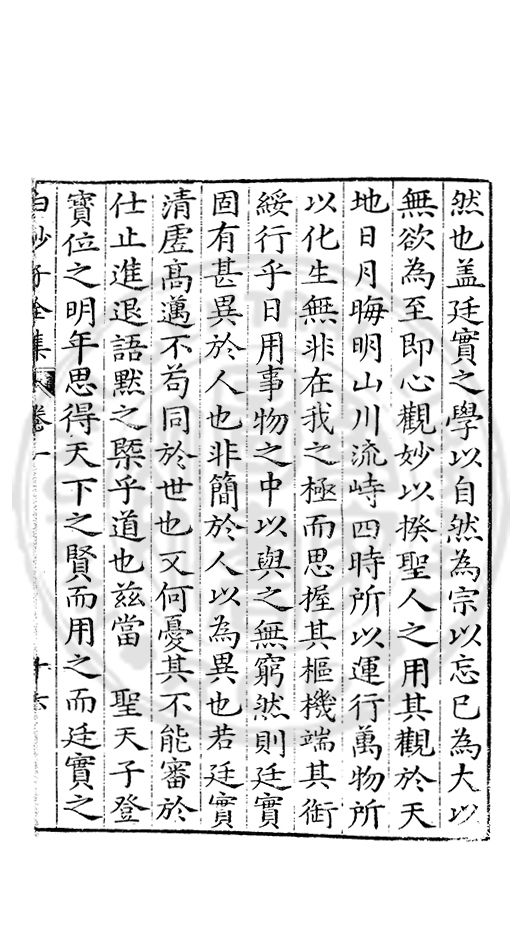 然也蓋廷實之學以自然為宗以忘已為大以
無欲為至即心觀妙以揆聖人之用其觀於天
地日月晦明山川流峙四時所以運行萬物所
以化生無非在我之極而思握其樞機端其銜
綏行乎日用事物之中以與之無窮然則廷實
固有甚異於人也非簡於人以為異也若廷實
清虗高邁不茍同於世也又何憂其不能審於
仕止進退語默之槩乎道也兹當 聖天子登
寶位之明年思得天下之賢而用之而廷實之
白沙子全集 卷一 十六